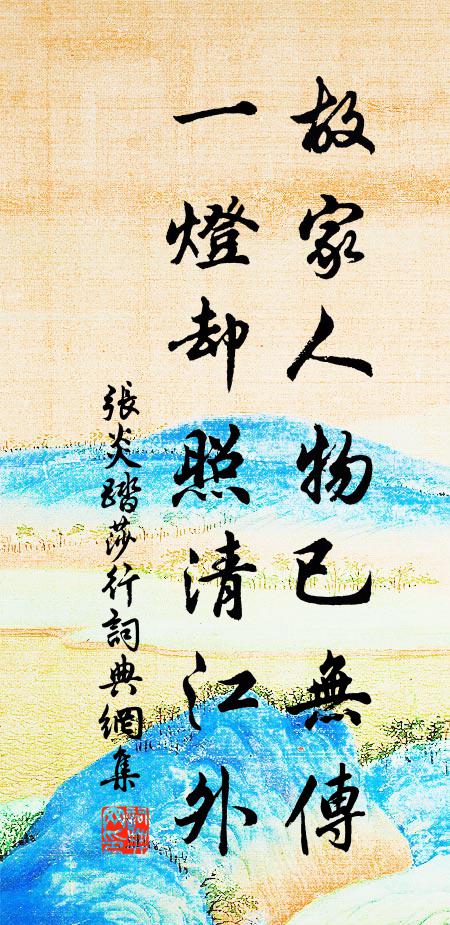 故家人物已無傳
一燈却照清江外
張炎踏莎行詞典網集